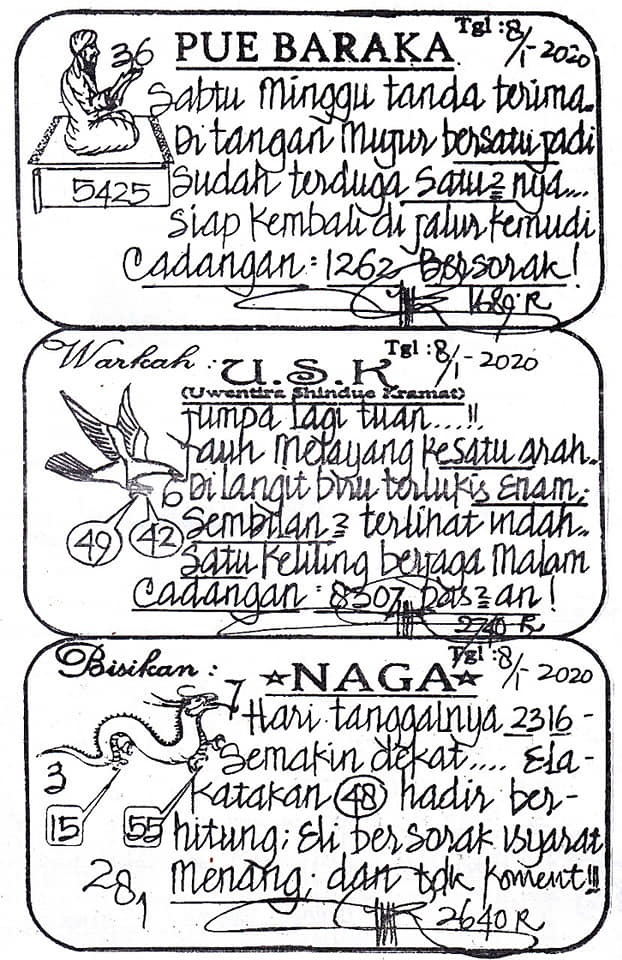 PUE BARAKA Tgl : 8/1 - 2020
36
Sabtu Minggu tanda terima..
Di tangan Mujur bersatu jadi
5425
Sudah terduga Satu2 nya....
Siap kembali di jalur kemudi
Cadangan : 1262 Bersorak!
1680 R
Warkah : U.S.K Tgl : 8/1 - 2020
(Uwentira Shindue Kramat)
Jumpa lagi tuan...!!
Jauh Melayang kesatu arah..
6 Di langit biru terlukis Enam;
49 42
Sembilan2 terlihat indah..
Satu keliling berjaga Malam
Cadangan : 8307 pas2 an!
2740 R
Bisikan : NAGA Tgl : 8/1 - 2020
7
Hari tanggalnya 2316 -
Semakin dekat.... Ela -
3
Katakan 48 hadir ber -
15 55
hitung; Eli bersorak isyarat
28,
Menang; dan tdk koment!!!
2640 R